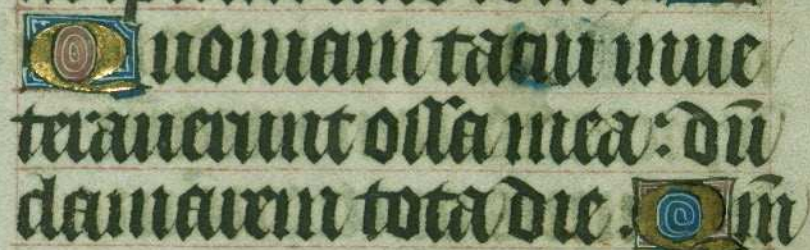 Quoniam tacui inue
terauerunt ossa mea : dū
clamarem tota die . Qm̄